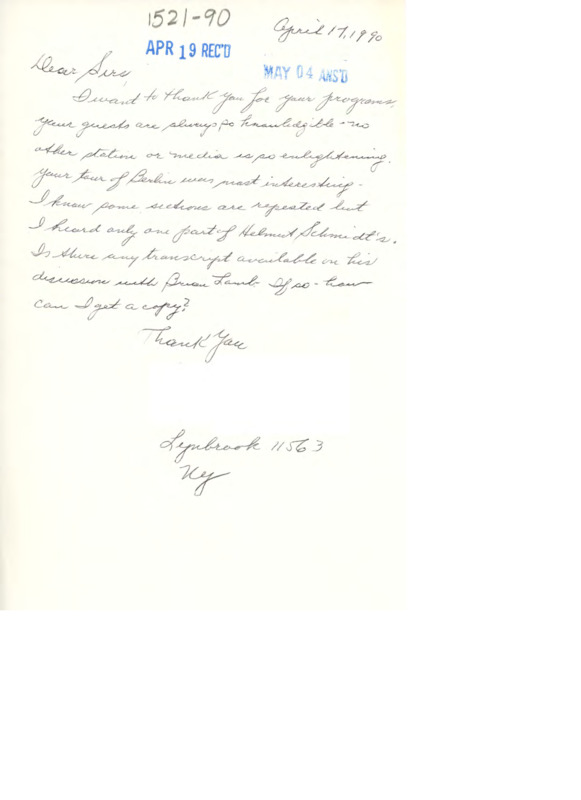 1521-90
April 17, 1990
APR 19 REC'D
MAY 04 ANS'D
Dear Sirs,
I want to thank you for your programs,
your guests are always so knowledgible - no
other station or media is so enlightening.
Your tour of Berlin was most interesting.
I know some sections are repeated but
I heard only one part of Helmut Schmidt's.
Is there any transcript available on his
discussion with Brian Lamb. If so - how
can I get a copy?
Thank You
Lynbrook 11563
Ny